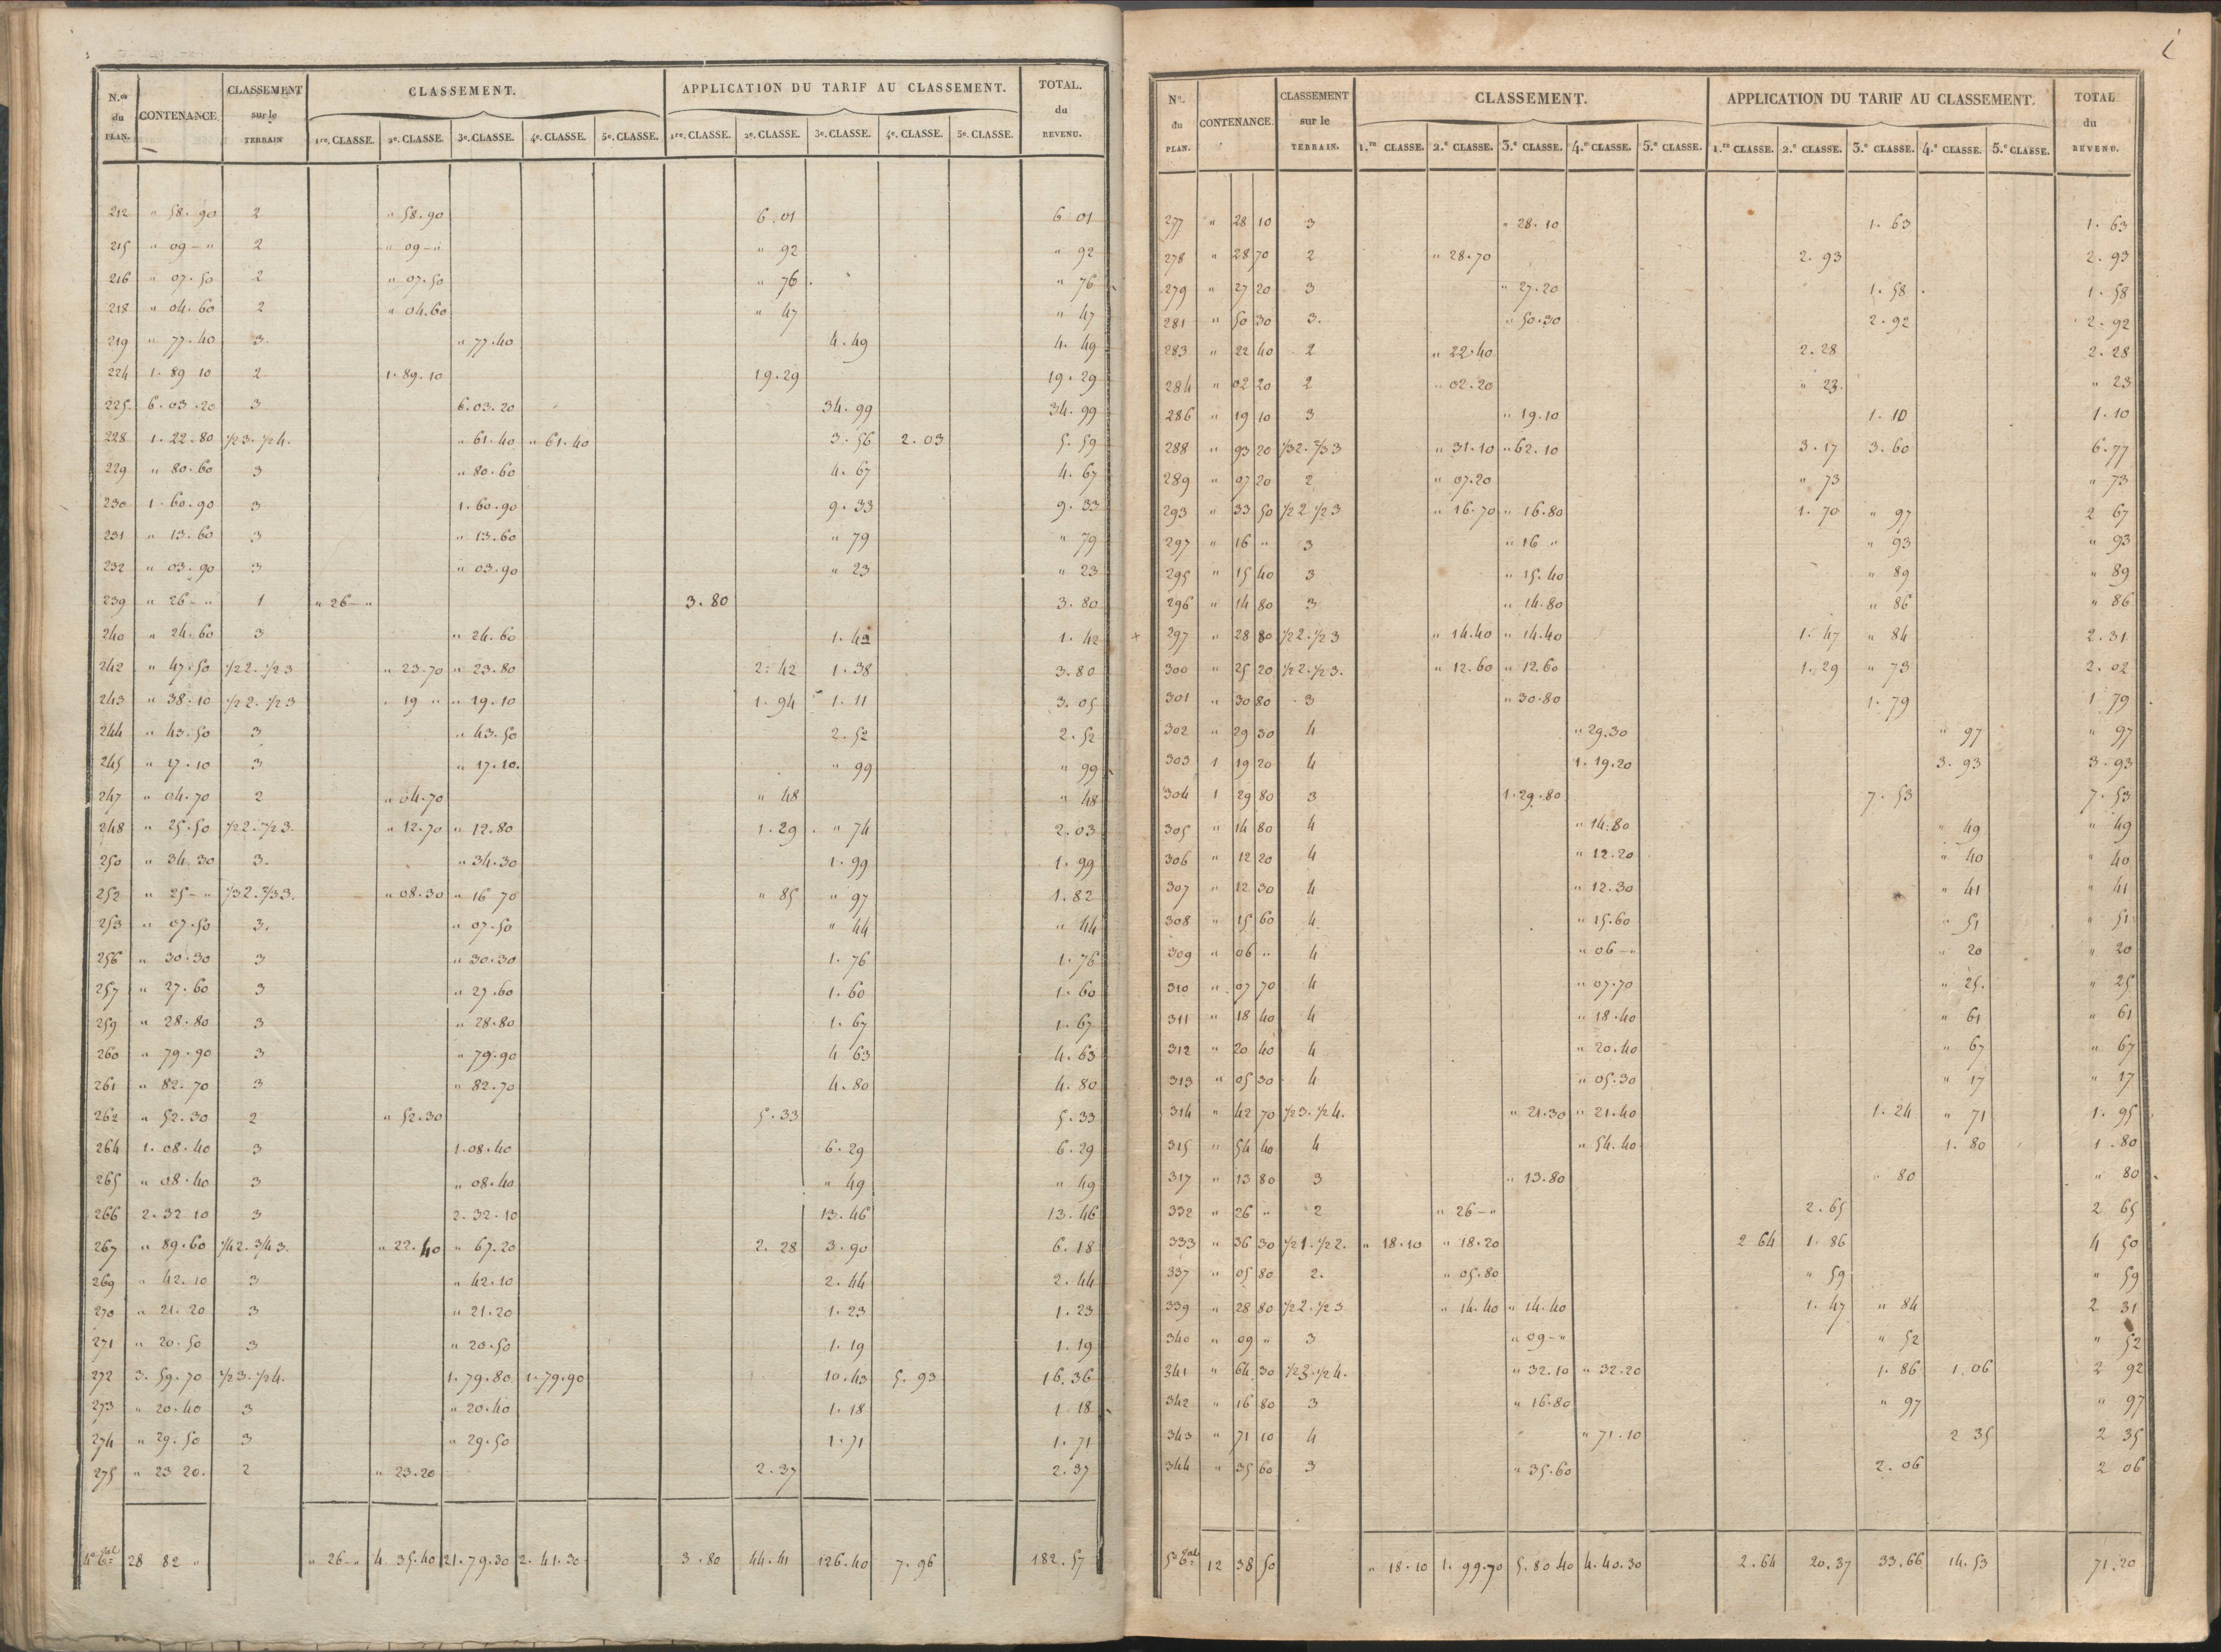 N.os du PLAN. CONTENANCE. CLASSEMENT sur le TERRAIN CLASSEMENT. APPLICATION DU TARIF AU CLASSEMENT. TOTAL. du REVENU.
1re. CLASSE. 2e. CLASSE. 3e. CLASSE. 4e. CLASSE. 5e. CLASSE. 1re. CLASSE. 2e. CLASSE. 3e. CLASSE. 4e. CLASSE. 5e. CLASSE.
212 " 58.90 2 " 58.90 6.01 6 01
215 " 09 - " 2 " 09 - " " 92 " 92
216 " 07.50 2 " 07.50 " 76 " 76
218 " 04.60 2 " 04.60 " 47 " 47
219 " 77.40 3. " 77.40 4.49 4.49
224 1.89 10 2 1.89.10 19.29 19.29
225. 6.03.20 3 6.03.20 34.99 34.99
228 1.22.80 1/2 3. 1/2 4. " 61.40 " 61.40 3.56 2.03 5.59
229 " 80.60 3 " 80.60 4.67 4.67
230 1.60.90 3 1.60.90 9.33 9.33
231 " 13.60 3 " 13.60 " 79 " 79
232 " 03.90 3 " 03.90 " 23 " 23
239 " 26 - " 1 " 26 - " 3.80 3.80
240 " 24.60 3 " 24.60 1.42 1.42
242 " 47.50 1/2 2. 1/2 3 " 23.70 " 23.80 2.42 1.38 3.80
243 " 38.10 1/2 2. 1/2 3 " 19 " " 19.10 1.94 1.11 3.05
244 " 43.50 3 " 43.50 2.52 2.52
245 " 17.10 3 " 17.10. " 99 " 99
247 " 04.70 2 " 04.70 " 48 " 48
248 " 25.50 1/2 2. 1/2 3. " 12.70 " 12.80 1.29 " 74 2.03
250 " 34.30 3. " 34.30 1.99 1.99
252 " 25 - " 1/3 2. 2/3 3. " 08.30 " 16 70 " 85 " 97 1.82
253 " 07.50 3. " 07.50 " 44 " 44
256 " 30.30 3 " 30.30 1.76 1.76
257 " 27.60 3 " 27.60 1.60 1.60
259 " 28.80 3 " 28.80 1.67 1.67
260 " 79.90 3 " 79.90 4 63 4.63
261 " 82.70 3 " 82.70 4.80 4.80
262 " 52.30 2 " 52.30 5.33 5.33
264 1.08.40 3 1.08.40 6.29 6.29
265 " 08.40 3 " 08.40 " 49 " 49
266 2.32 10 3 2.32.10 13.46 13.46
267 " 89.60 1/4 2. 3/4 3. " 22.40 " 67.20 2.28 3.90 6.18
269 " 42.10 3 " 42.10 2.44 2.44
270 " 21.20 3 " 21.20 1.23 1.23
271 " 20.50 3 " 20.50 1.19 1.19
272 3.59.70 1/2 3. 1/2 4. 1.79.80 1.79.90 10.43 5.93 16.36
273 " 20.40 3 " 20.40 1.18 1.18
274 " 29.50 3 " 29.50 1.71 1.71
275 " 23 20. 2 " 23.20 2.37 2.37
28 82 " " 26 - " 4 35.40 21.79.30 2.41.30 3.80 44.41 126.40 7.96 182.57
N.o du PLAN. CONTENANCE. CLASSEMENT sur le TERRAIN. CLASSEMENT. APPLICATION DU TARIF AU CLASSEMENT. TOTAL du REVENU.
1.re CLASSE. 2.e CLASSE. 3.e CLASSE. 4.e CLASSE. 5.e CLASSE. 1.re CLASSE. 2.e CLASSE. 3.e CLASSE. 4.e CLASSE. 5.e CLASSE.
277 " 28 10 3 " 28.10 1.63 1.63
278 " 28 70 2 " 28.70 2.93 2.93
279 " 27 20 3 " 27.20 1.58 1.58
281 " 50 30 3. " 50.30 2.92 2.92
283 " 22 40 2 " 22.40 2.28 2.28
284 " 02 20 2 " 02.20 " 23. " 23
286 " 19 10 3 " 19.10 1.10 1.10
288 " 93 20 1/3 2. 2/3 3 " 31.10 " 62.10 3.17 3.60 6.77
289 " 07 20 2 " 07.20 " 73 " 73
293 " 33 50 1/2 2 1/2 3 " 16.70 " 16.80 1.70 " 97 2 67
297 " 16 " 3 " 16 " " 93 " 93
295 " 15 40 3 " 15.40 " 89 " 89
296 " 14 80 3 " 14.80 " 86 " 86
+ 297 " 28 80 1/2 2. 1/2 3 " 14.40 " 14.40 1.47 " 84 2.31
300 " 25 20 1/2 2. 1/2 3. " 12.60 " 12.60 1.29 " 73 2.02
301 " 30 80 3 " 30.80 1.79 1 79
302 " 29 30 4 " 29.30 " 97 " 97
303 1 19 20 4 1.19.20 3.93 3.93
304 1 29 80 3 1.29.80 7.53 7.53
305 " 14 80 4 " 14.80 " 49 " 49
306 " 12 20 4 " 12.20 " 40 " 40
307 " 12 30 4 " 12.30 " 41 " 41
308 " 15 60 4 " 15.60 " 51 " 51
309 " 06 " 4 " 06 - " " 20 " 20
310 " 07 70 4 " 07.70 " 25. " 25
311 " 18 40 4 " 18.40 " 61 " 61
312 " 20 40 4 " 20.40 " 67 " 67
313 " 05 30 4 " 05.30 " 17 " 17
314 " 42 70 1/2 3. 1/2 4. " 21.30 " 21.40 1.24 " 71 1.95
315 " 54 40 4 " 54.40 1.80 1.80
317 " 13 80 3 " 13.80 " 80 " 80
332 " 26 " 2 " 26 - " 2.65 2 65
333 " 36 30 1/2 1. 1/2 2. " 18.10 " 18.20 2 64 1.86 4 50
337 " 05 80 2. " 05.80 " 59 " 59
339 " 28 80 1/2 2. 1/2 3 " 14.40 " 14.40 1.47 " 84 2 31
340 " 09 " 3 " 09 - " " 52 " 52
341 " 64 30 1/2 3. 1/2 4. " 32.10 " 32.20 1.86 1.06 2 92
342 " 16 80 3 " 16.80 " 97 " 97
343 " 71 10 4 " 71.10 2 35 2 35
344 " 35 60 3 " 35.60 2.06 2 06
12 38 50 " 18.10 1.99.70 5.80 40 4.40.30 2.64 20.37 33.66 14.53 71.20